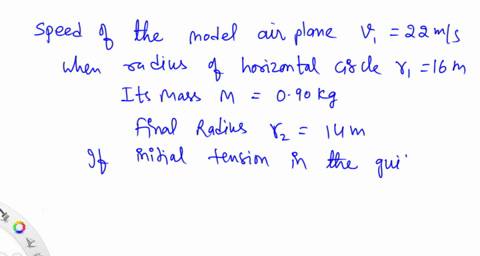 Speed of the model air plane v₁ = 22 m/s
when radius of horizontal circle r₁ = 16 m
Its mass M = 0.90 kg
final Radius r₂ = 14 m
If initial tension in the gui